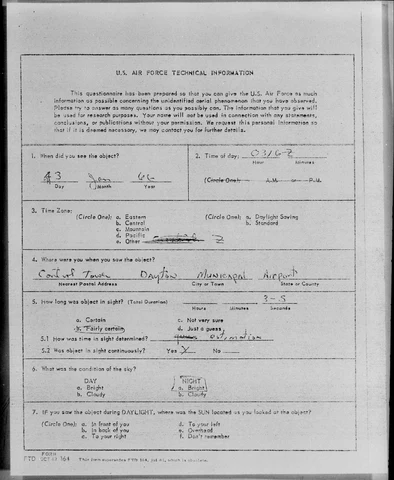 U.S. AIR FORCE TECHNICAL INFORMATION
This questionnaire has been prepared so that you can give the U.S. Air Force as much
information as possible concerning the unidentified aerial phenomenon that you have observed.
Please try to answer as many questions as you possibly can. The information that you give will
be used for research purposes. Your name will not be used in connection with any statements,
conclusions, or publications without your permission. We request this personal information so
that if it is deemed necessary, we may contact you for further details.
1. When did you see the object?
3 Jan 66
Day Month Year
2. Time of day: 0316 Z
Hour Minutes
(Circle One): A.M. or P.M.
3. Time Zone:
(Circle One): a. Eastern
b. Central
c. Mountain
d. Pacific
e. Other Z
(Circle One): a. Daylight Saving
b. Standard
4. Where were you when you saw the object?
Control Tower Dayton Municipal Airport
Nearest Postal Address City or Town State or County
5. How long was object in sight? (Total Duration) 3-5
Hours Minutes Seconds
a. Certain c. Not very sure
b. Fairly certain d. Just a guess
5.1 How was time in sight determined? estimation
5.2 Was object in sight continuously? Yes X No
6. What was the condition of the sky?
DAY NIGHT
a. Bright a. Bright
b. Cloudy b. Cloudy
7. IF you saw the object during DAYLIGHT, where was the SUN located as you looked at the object?
(Circle One): a. In front of you d. To your left
b. In back of you e. Overhead
c. To your right f. Don't remember
FORM
FTD OCT 62 164 This form supersedes FTD 164,